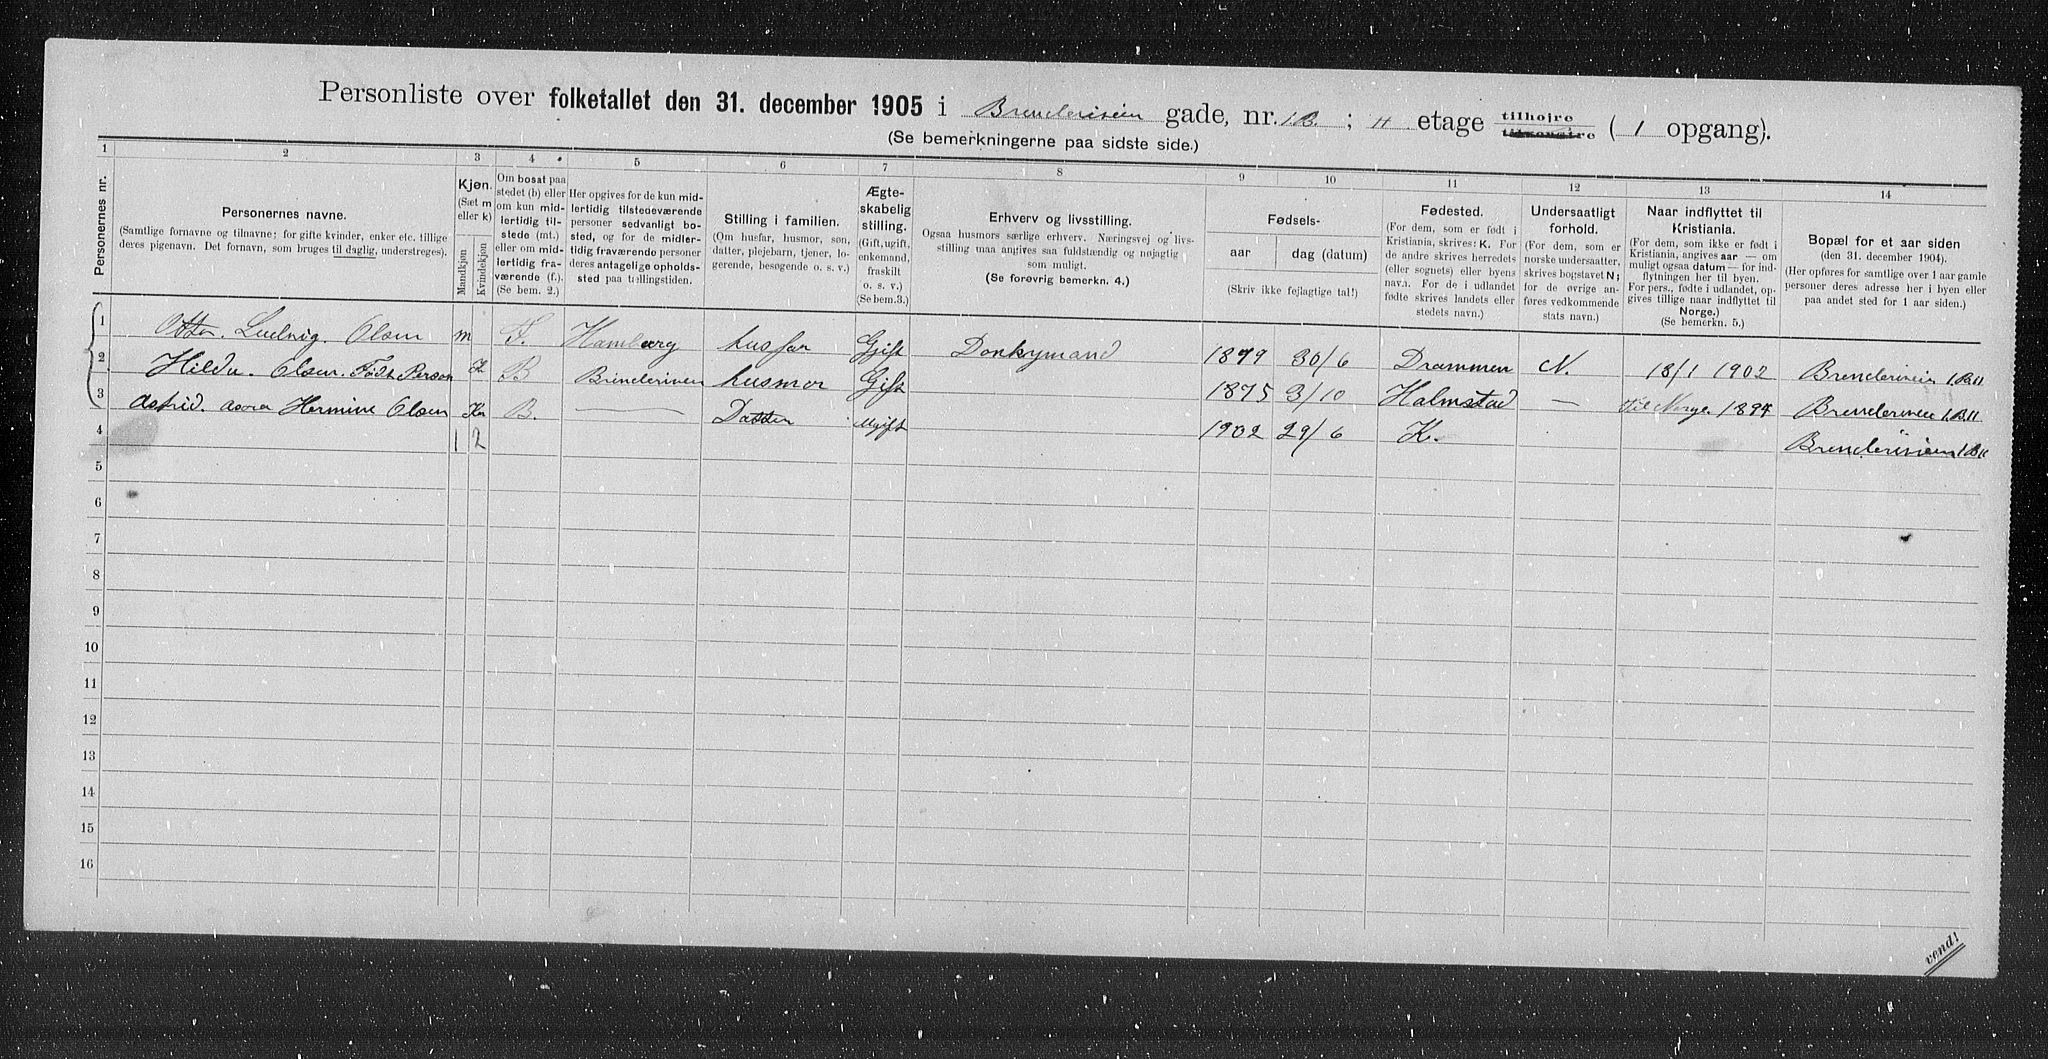 Personliste over folketallet den 31. december 1905 i Brenderiveien gade, nr. 1B. ; II etage tilhøire tilvenstre ( 1 opgang).
(Se bemerkningerne paa sidste side.)
1 2 3 4 5 6 7 8 9 10 11 12 13 14
Personernes nr.
Personernes navne.
(Samtlige fornavne og tilnavne; for gifte kvinder, enker etc. tillige
deres pigenavn. Det fornavn, som bruges til daglig, understreges).
Kjøn.
(Sæt m
eller k)
Mandkjøn
Kvindekjøn
Om bosat paa
stedet (b) eller
om kun mid-
lertidig til-
stede (mt.)
eller om mid-
lertidig fra-
værende (f.).
(Se bem. 2.)
Her opgives for de kun mid-
lertidig tilstedeværende
personer sedvanligt bo-
sted, og for de midler-
tidig fraværende personer
deres antagelige opholds-
sted paa tællingstiden.
Stilling i familien.
(Om husfar, husmor, søn,
datter, plejebarn, tjener, lo-
gerende, besøgende o. s. v.)
Ægte-
skabelig
stilling.
(Gift, ugift,
enkemand,
fraskilt
o. s. v.)
(Se bem.3.)
Erhverv og livsstilling.
Ogsaa husmors særlige erhverv. Næringsvej og livs-
stilling maa angives saa fuldstændig og nøjagtig
som muligt.
(Se forøvrig bemerkn. 4.)
Fødsels-
aar dag (datum)
(Skriv ikke fejlagtige tal!)
Fødested.
(For dem, som er født i
Kristiania, skrives: K. For
de andre skrives herredets
(eller sognets) eller byens
navn. For de i udlandet
fødte skrives landets eller
stedets navn.)
Undersaatligt
forhold.
(For dem, som er
norske undersaatter,
skrives bogstavet N;
for de øvrige an-
føres vedkommende
stats navn.)
Naar indflyttet til
Kristiania.
(For dem, som ikke er født i
Kristiania, angives aar — om
muligt ogsaa datum — for ind-
flytningen her til byen.
For pers., fødte i udlandet, op-
gives tillige naar indflyttet til
Norge.)
(Se bemerkn. 5.)
Bopæl for et aar siden
(den 31. december 1904).
(Her opføres for samtlige over 1 aar gamle
personer deres adresse her i byen eller
paa andet sted for 1 aar siden.)
1 Otto. Ludvig. Olsen m F. Hamburg husfar Gift Donkymand 1879 30/6 Drammen N. 18/1 1902 Brenderiveien 1.B.II
2 Hilda. Olsen. Født Person K B Brenderiveien husmor Gift 1875 3/10 Halmstad — til Norge 1897 Brenderiveien 1.B.II
3 Astrid. Hermine Olsen K B. — Datter Ugift 1902 29/6 K. Brenderiveien 1.B.II
4 1 2
5
6
7
8
9
10
11
12
13
14
15
16
vend!